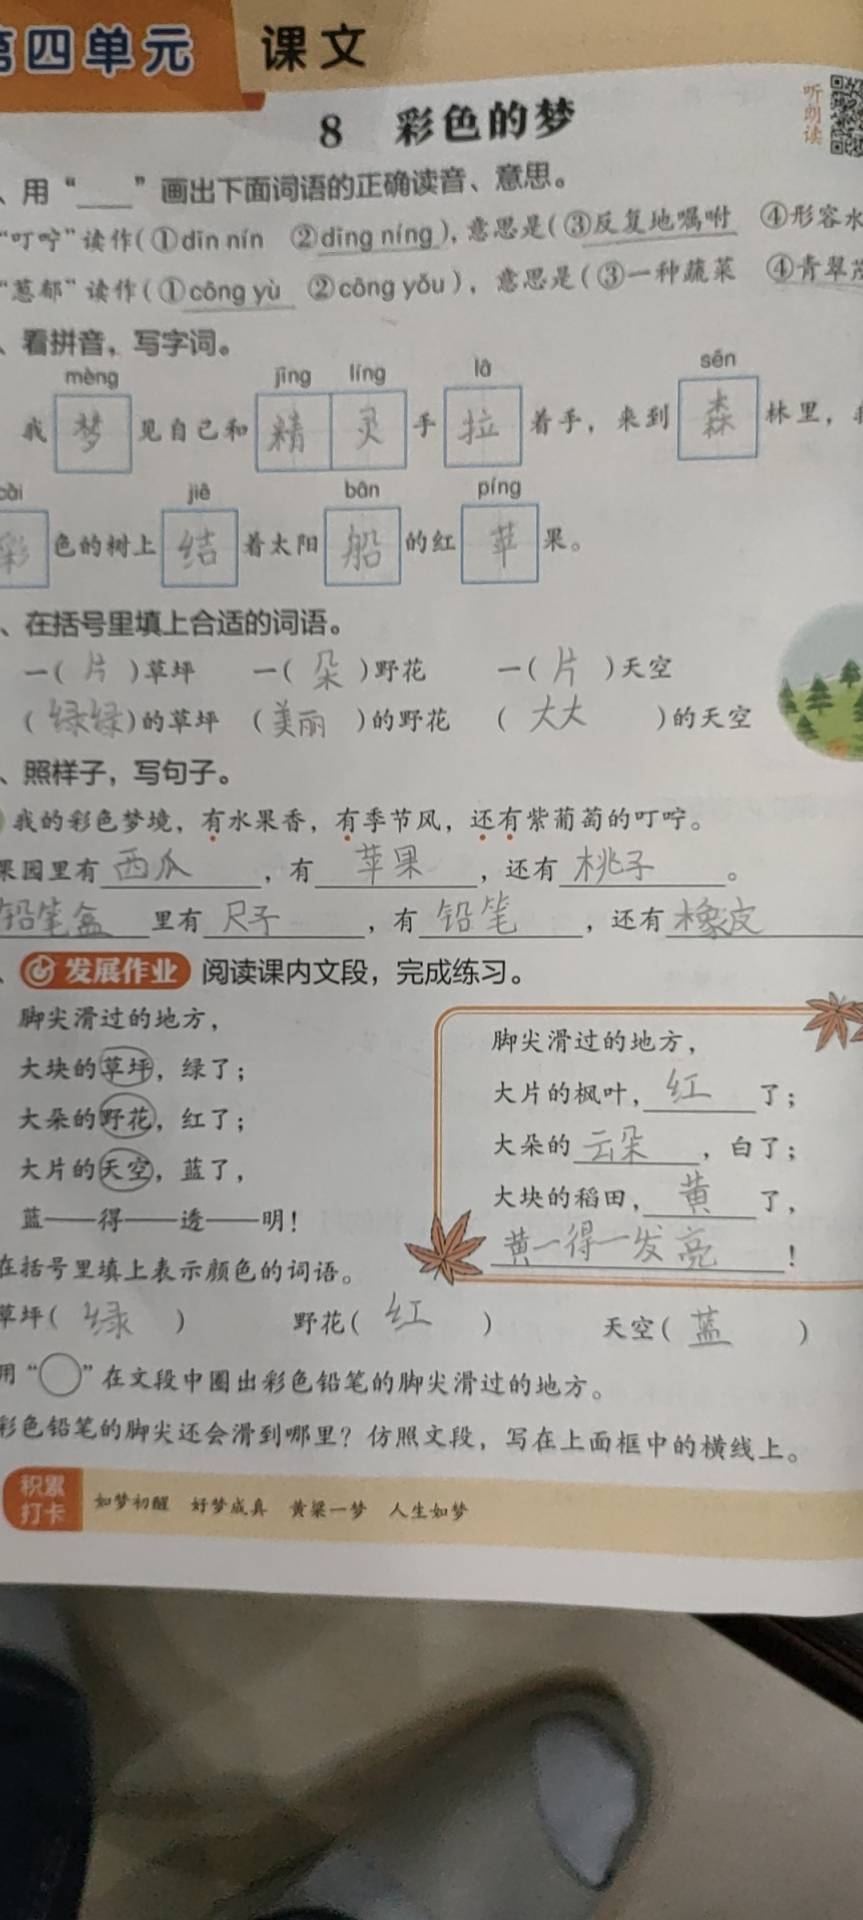 第四单元 课文
听朗读
8 彩色的梦
、用“____”画出下面词语的正确读音、意思。
“叮咛”读作(①dīn nín ②dīng níng),意思是(③反复地嘱咐 ④形容水
“葱郁”读作(①cōng yù ②cōng yǒu),意思是(③一种蔬菜 ④青翠茂
、看拼音,写字词。
mèng jīng líng lā sēn
我 梦 见自己和 精 灵 手 拉 着手,来到 森 林里,我
cǎi jiē bān píng
彩 色的树上 结 着太阳 船 的红 苹 果。
、在括号里填上合适的词语。
一( 片 )草坪 一( 朵 )野花 一( 片 )天空
( 绿绿 )的草坪 ( 美丽 )的野花 ( 大大 )的天空
、照样子,写句子。
我的彩色梦境,有水果香,有季节风,还有紫葡萄的叮咛。
果园里有 西瓜 ,有 苹果 ,还有 桃子 。
铅笔盒 里有 尺子 ,有 铅笔 ,还有 橡皮
、发展作业 阅读课内文段,完成练习。
脚尖滑过的地方,
大块的草坪,绿了;
大朵的野花,红了;
大片的天空,蓝了,
蓝——得——透——明!
脚尖滑过的地方,
大片的枫叶, 红 了;
大朵的 云朵 ,白了;
大块的稻田, 黄 了,
黄一得一发亮 !
在括号里填上表示颜色的词语。
草坪( 绿 ) 野花( 红 ) 天空( 蓝 )
用“○”在文段中圈出彩色铅笔的脚尖滑过的地方。
彩色铅笔的脚尖还会滑到哪里?仿照文段,写在上面框中的横线上。
积累打卡 如梦初醒 好梦成真 黄粱一梦 人生如梦